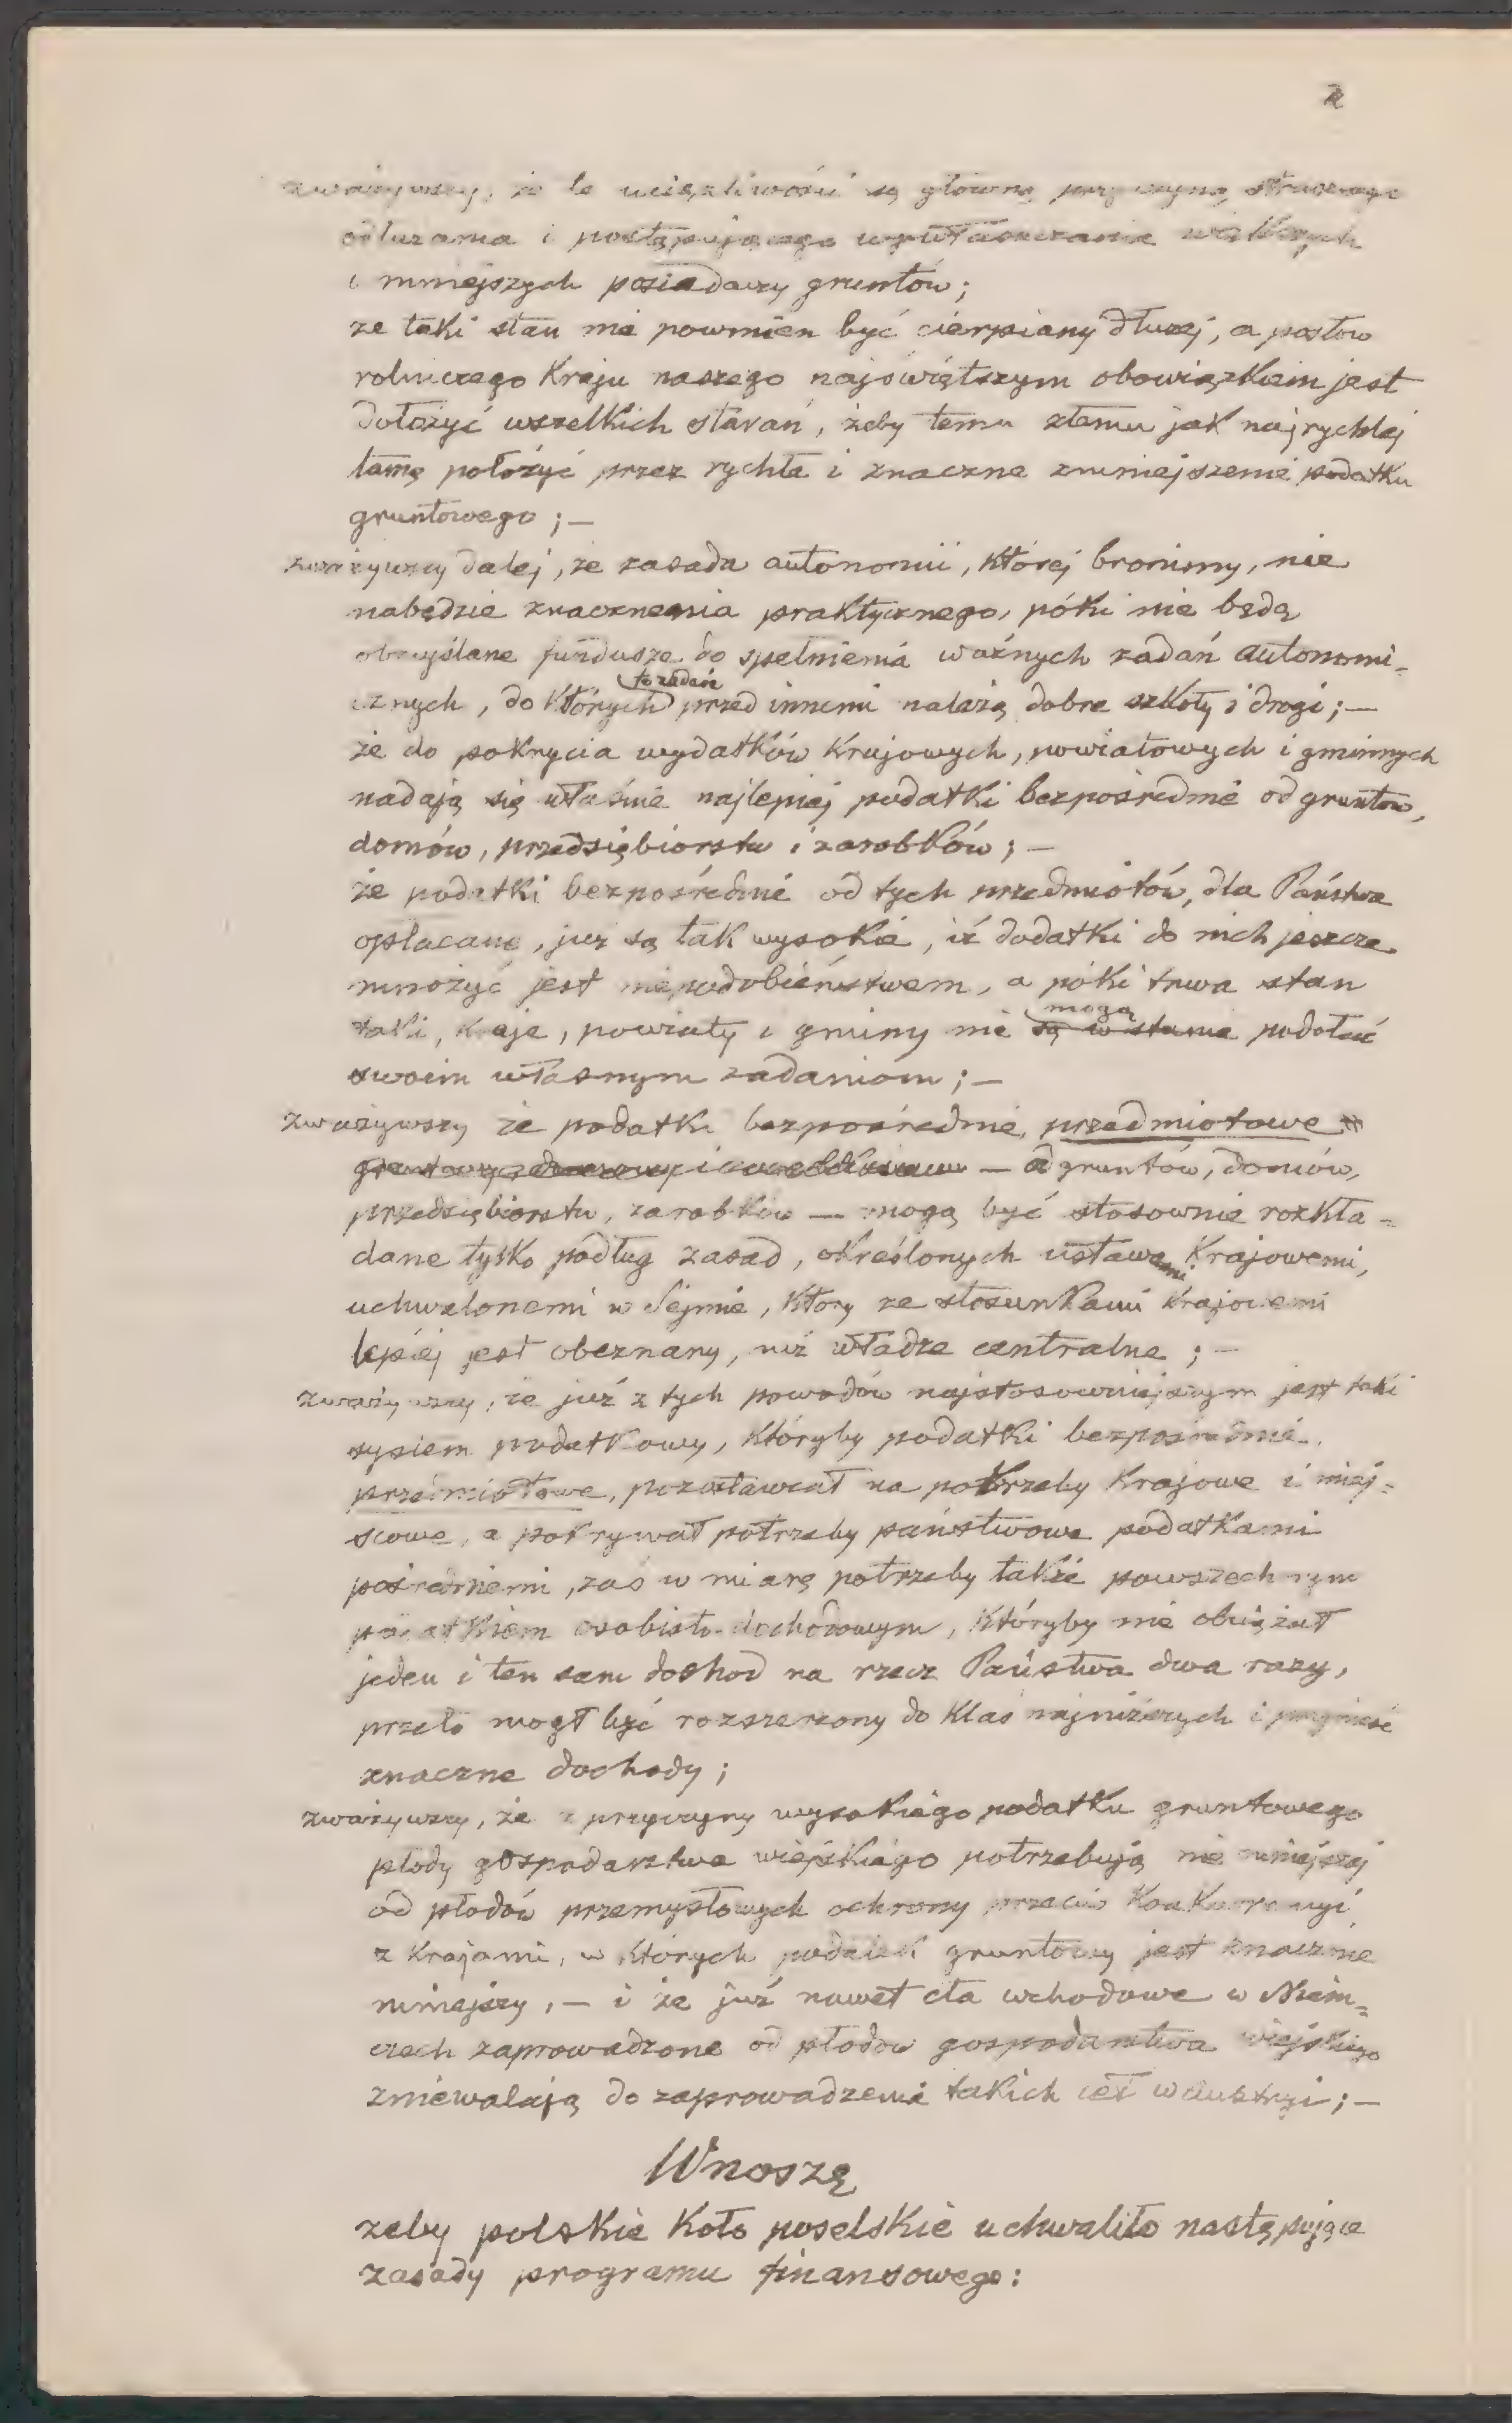 2
zważywszy, że te uciążliwości są główną przyczyną
odłużania i postępującego wywłaszczania większych
i mniejszych posiadaczy gruntów;
że taki stan nie powinien być cierpiany dłużej, a posłów
rolniczego Kraju naszego najświętszym obowiązkiem jest
dołożyć wszelkich starań, żeby temu złemu jak najrychlej
tamę położyć przez rychłe i znaczne zmniejszenie podatku
gruntowego; —
zważywszy dalej, że zasada autonomii, której bronimy, nie
nabędzie znaczenia praktycznego, póki nie będą
obmyślane fundusze do spełnienia ważnych zadań autonomi=
cznych, do których przed innemi należą dobre szkoły i drogi; —
że do pokrycia wydatków Krajowych, powiatowych i gminnych
nadają się właśnie najlepiej podatki bezpośrednie od gruntów,
domów, przedsiębiorstw i zarobków; —
że podatki bezpośrednie od tych przedmiotów, dla Państwa
opłacane, już są tak wysokie, iż dodatki do nich jeszcze
mnożyć jest niepodobieństwem, a póki trwa stan
taki, kraje, powiaty i gminy nie są w stanie mogą podołać
swoim własnym zadaniom; —
zważywszy że podatki bezpośrednie, przedmiotowe
— od gruntów, domów,
przedsiębiorstw, zarobków — mogą być stosownie rozkła=
dane tylko podług zasad, określonych ustawami Krajowemi,
uchwalonemi w Sejmie, który ze stosunkami Krajowemi
lepiej jest obeznany, niż władze centralne; —
zważywszy, że już z tych powodów najstosowniejszym jest taki
sysiem podatkowy, któryby podatki bezpośrednie,
przedmiotowe, pozostawiał na potrzeby Krajowe i miej=
scowe, a pokrywał potrzeby państwowe podatkami
pośredniemi, zaś w miarę potrzeby także powszechnym
podatkiem osobisto-dochodowym, któryby nie obciążał
jeden i ten sam dochod na rzecz Państwa dwa razy,
przeto mogł być rozszerzony do Klas najniższych i przynieść
znaczne dochody;
zważywszy, że z przyczyny wysokiego podatku gruntowego
płody gospodarstwa wiejskiego potrzebują nie mniejszej
od płodów przemysłowych ochrony przeciw Konkurencyi
z Krajami, w których podatek gruntowy jest znacznie
mniejszy, — i że już nawet cła wchodowe w Niem=
czech zaprowadzone od płodów gospodarstwa wiejskiego
zniewalają do zaprowadzenia takich ceł w Austryi; —
Wnoszę
żeby polskie Koło poselskie uchwaliło następujące
zasady programu finansowego: